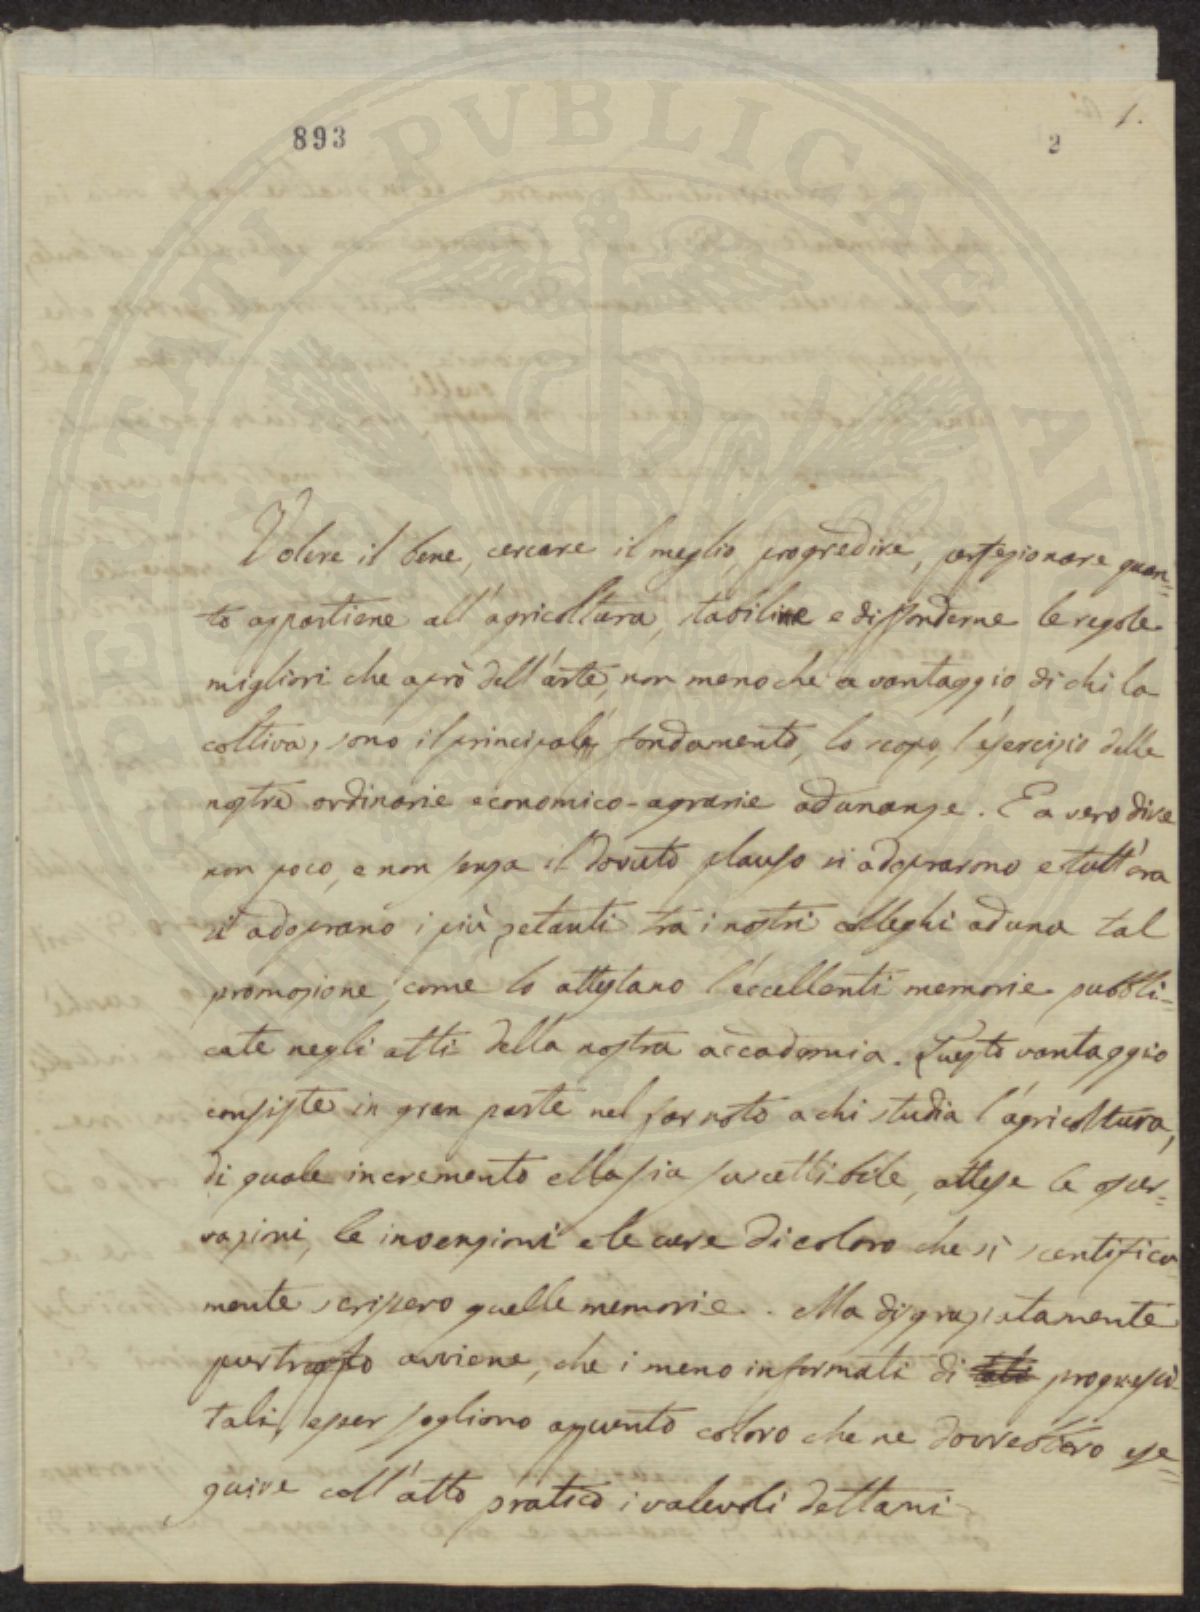 893
2
1.
Volere il bene, cercare il meglio, progredire, perfezionare quan=
to appartiene all'agricoltura, stabilire e diffonderne le regole
migliori che a prò dell'arte, non meno che a vantaggio di chi la
coltiva, sono il principale fondamento, lo scopo, l'esercizio delle
nostre ordinarie economico-agrarie adunanze. E a vero dire
non poco, e non senza il dovuto plauso si adoprarono e tutt'ora
si adoprano i più zelanti tra i nostri colleghi ad una tal
promozione, come lo attestano l'eccellenti memorie pubbli=
cate negli atti della nostra accademia. Questo vantaggio
consiste in gran parte nel far noto a chi studia l'agricoltura,
di quale incremento ella sia suscettibile, attese le osser=
vazioni, le invenzioni e le cure di coloro che sì scentifica
mente scrissero quelle memorie. Ma disgraziatamente
purtroppo avviene, che i meno informati di tali progressi
tali, esser sogliono appunto coloro che ne dovrebbero ese=
guire coll'atto pratico i valevoli dettami
SPERITATI PVBLICAE AV